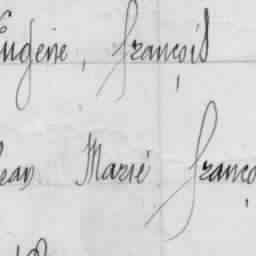 Eugène, françois
Jean Marie franço